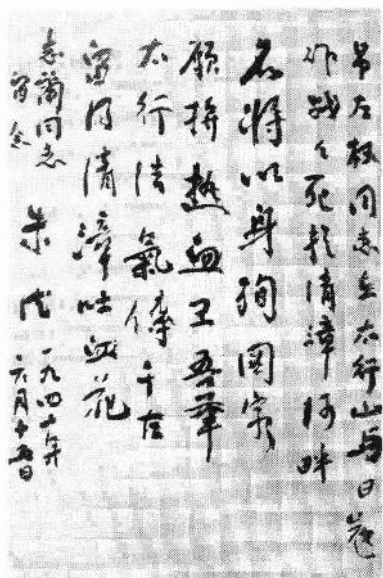 吊左权同志在太行山与日寇
作战々死於清漳河畔
名将以身殉國家
願拚熱血卫吾華
太行浩氣傳千古
留得清漳吐血花
志蘭同志
留念
朱德
九四 年
六月十五日